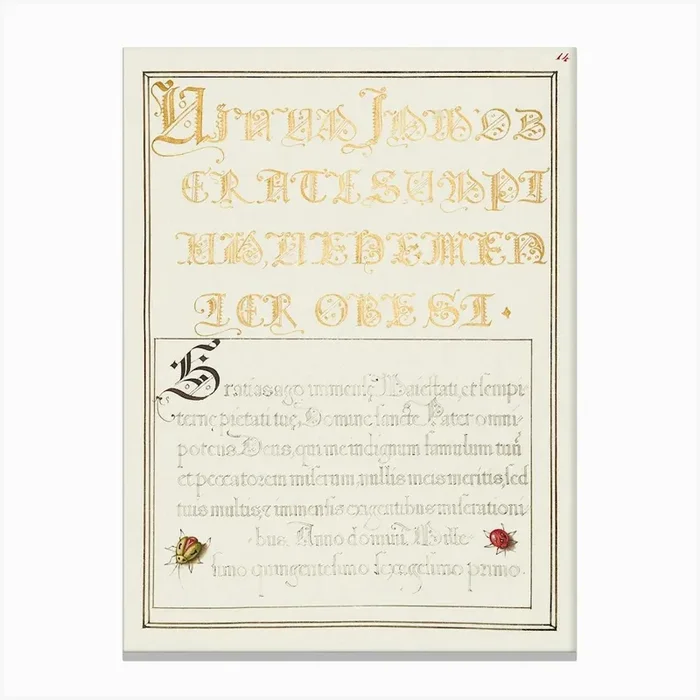 14
VINUM IMMOD
ERATE SUMPT
UM, VEHEMEN
TER OBEST.
Gratias ago immensę Maiestati, et sempi-
ternę pietati tuę, Domine sancte Pater omni-
potens Deus, qui me indignum famulum tuũ
et peccatorem miserum, nullis meis meritis, sed
tuis multis, immensis exigentibus miserationi-
bus. Anno domini, Mille-
simo quingentesimo sexagesimo primo.